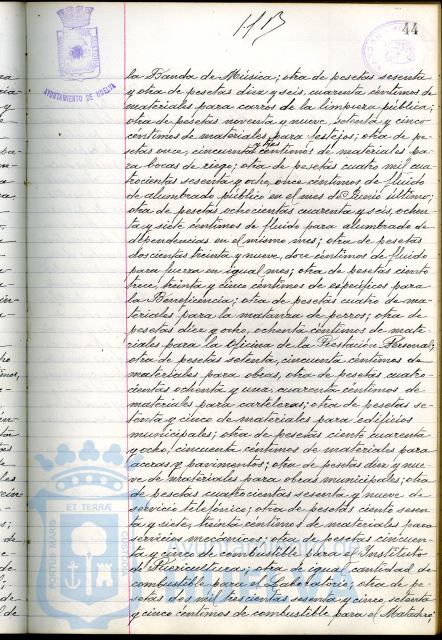 44
AYUNTAMIENTO DE HUELVA
la Banda de Música; otra de pesetas sesenta
y otra de pesetas diez y seis, cuarenta céntimos de
materiales para carros de la limpieza pública;
otra de pesetas noventa y nueve, setenta y cinco
céntimos de materiales para festejos; otra de pe-
setas once, cincuenta y tres céntimos de materiales pa-
ra bocas de riego; otra de pesetas cuatro mil cua
trocientas sesenta y ocho, once céntimos de fluido
de alumbrado público en el mes de Junio último;
otra de pesetas ochocientas cuarenta y seis, ochen
ta y siete céntimos de fluido para alumbrado de
dependencias en el mismo mes; otra de pesetas
doscientas treinta y nueve, doce céntimos de fluido
para fuerza en igual mes; otra de pesetas ciento
trece, treinta y cinco céntimos de específicos para
la Beneficencia; otra de pesetas cuatro de ma-
teriales para la matanza de perros; otra de
pesetas diez y ocho, ochenta céntimos de mate
riales para la Oficina de la Prestación Personal;
otra de pesetas setenta, cincuenta céntimos de
materiales para obras, otra de pesetas cuatro
cientas ochenta y una, cuarenta céntimos de
materiales para carteleras; otra de pesetas se-
tenta y cinco de materiales para edificios
municipales; otra de pesetas ciento cuarenta
y ocho, cincuenta céntimos de materiales para
aceras y pavimentos; otra de pesetas diez y nue
ve de materiales para obras municipales; otra
de pesetas cuatrocientas sesenta y nueve de
servicio telefónico; otra de pesetas ciento sesen
ta y siete, treinta céntimos de materiales para
servicios mecánicos; otra de pesetas cincuen
ta y cinco de combustible para el Instituto
de Puericultura; otra de igual cantidad de
combustible para el Laboratorio; otra de pe-
setas dos mil trescientas sesenta y cinco, setenta
y cinco céntimos de combustible para el Matadero;
PORTUS MARIS ET TERRAE CUSTODIA